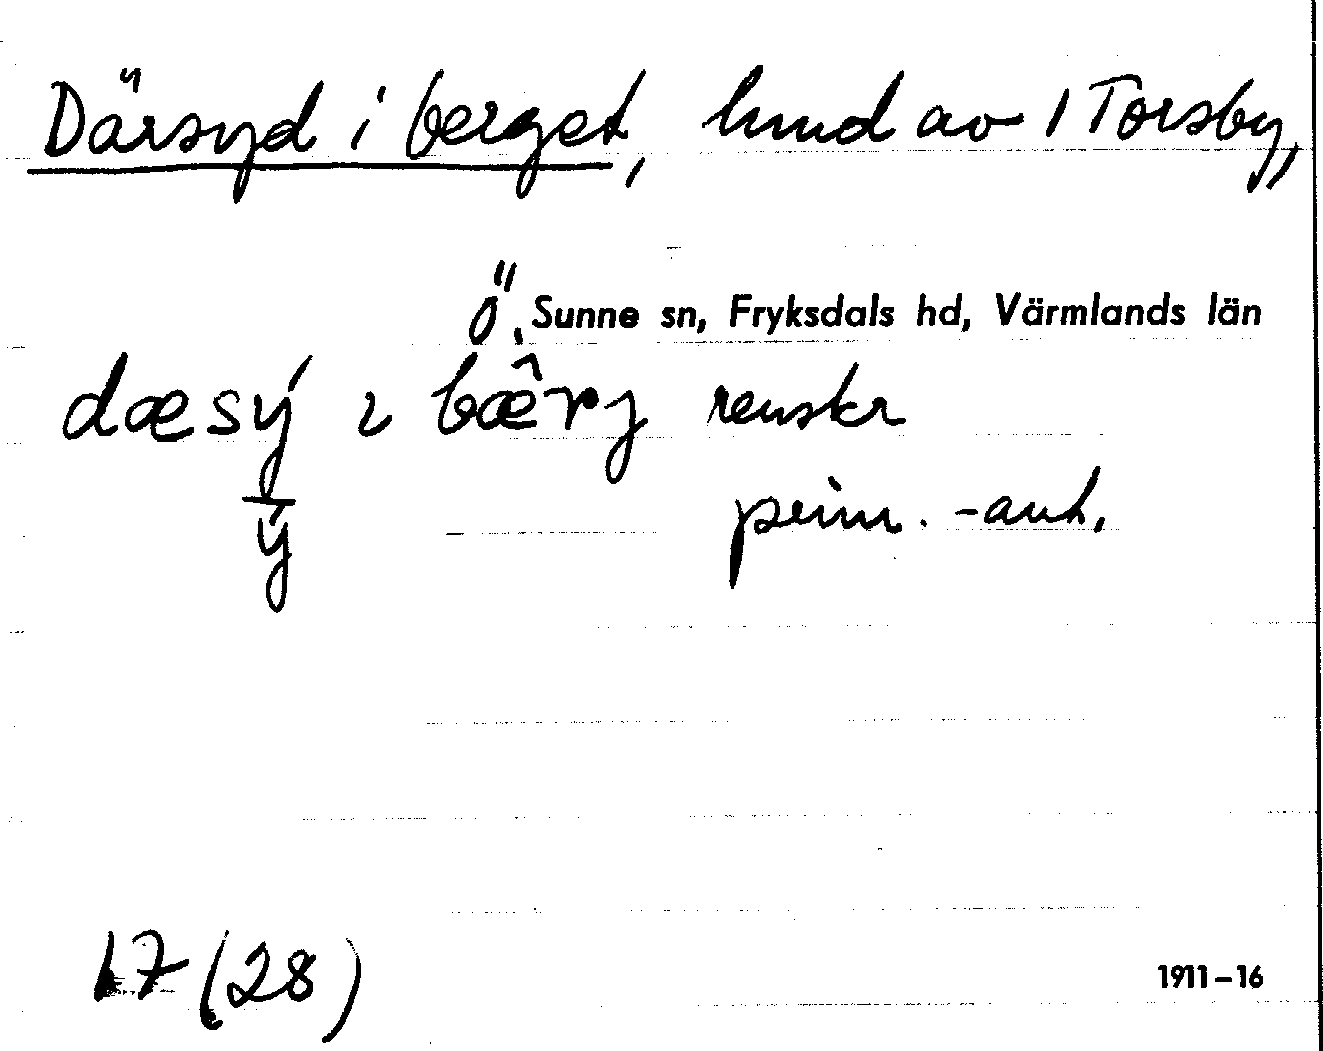 Därsyd i berget, hmd av 1 Torsby,
Ö. Sunne sn, Fryksdals hd, Värmlands län
dæsý ɩ bæ̂rj renskr
ý
prim. -ant.
17 (28)
1911–16